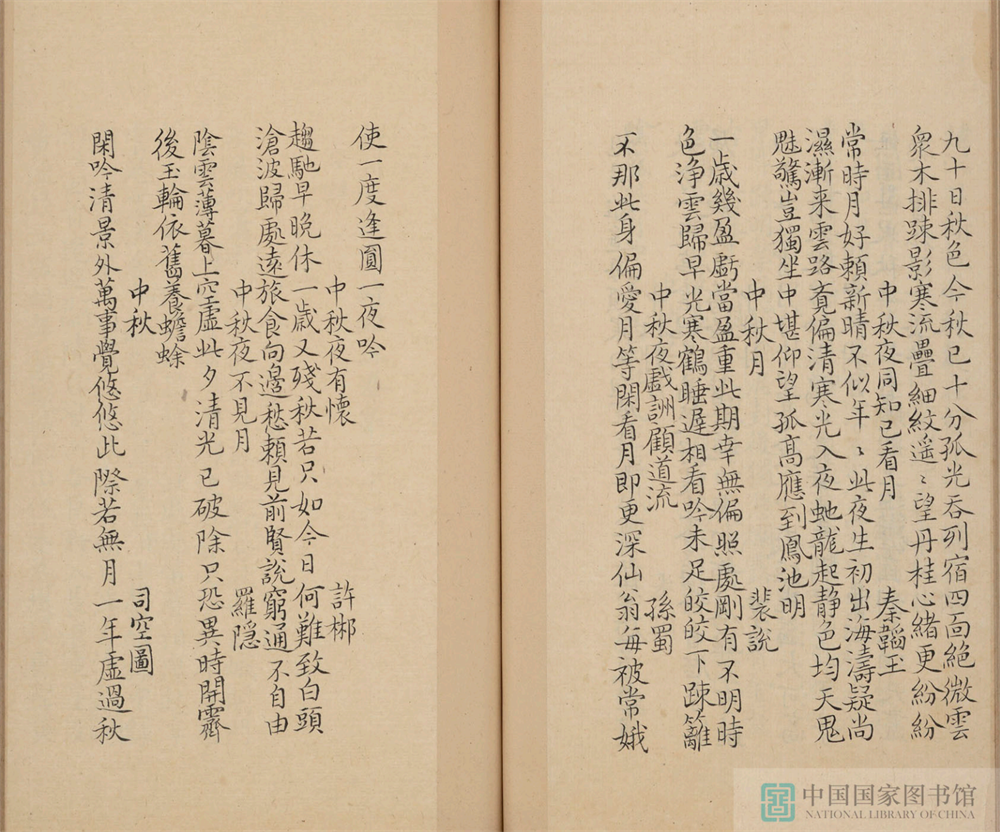 九十日秋色今秋已十分孤光吞列宿四面絕微雲
衆木排踈影寒流疊細紋遥〻望丹桂心緒更紛紛
中秋夜同知己看月 秦韜玉
常時月好頼新晴不似年〻此夜生初出海濤疑尚
濕漸来雲路竟偏清寒光入夜虵龍起静色均天鬼
魅驚豈獨坐中堪仰望孤高應到鳳池明
中秋月 裴說
一歳幾盈虧當盈重此期幸無偏照處剛有不明時
色浄雲歸早光寒鶴睡遲相看吟未足皎皎下踈籬
中秋夜戲詶顧道流 孫蜀
不那此身偏愛月等閑看月即更深仙翁每被常娥
使一度逢圓一夜吟
中秋夜有懷 許郴
趨馳早晚休一歳又殘秋若只如今日何難致白頭
滄波歸處遠旅食向邊愁頼見前賢說窮通不自由
中秋夜不見月 羅隠
陰雲薄暮上空虛此夕清光已破除只恐異時開霽
後玉輪依舊養蟾蜍
中秋 司空圖
閑吟清景外萬事覺悠悠此際若無月一年虛過秋
中国国家图书馆
NATIONAL LIBRARY OF CHINA